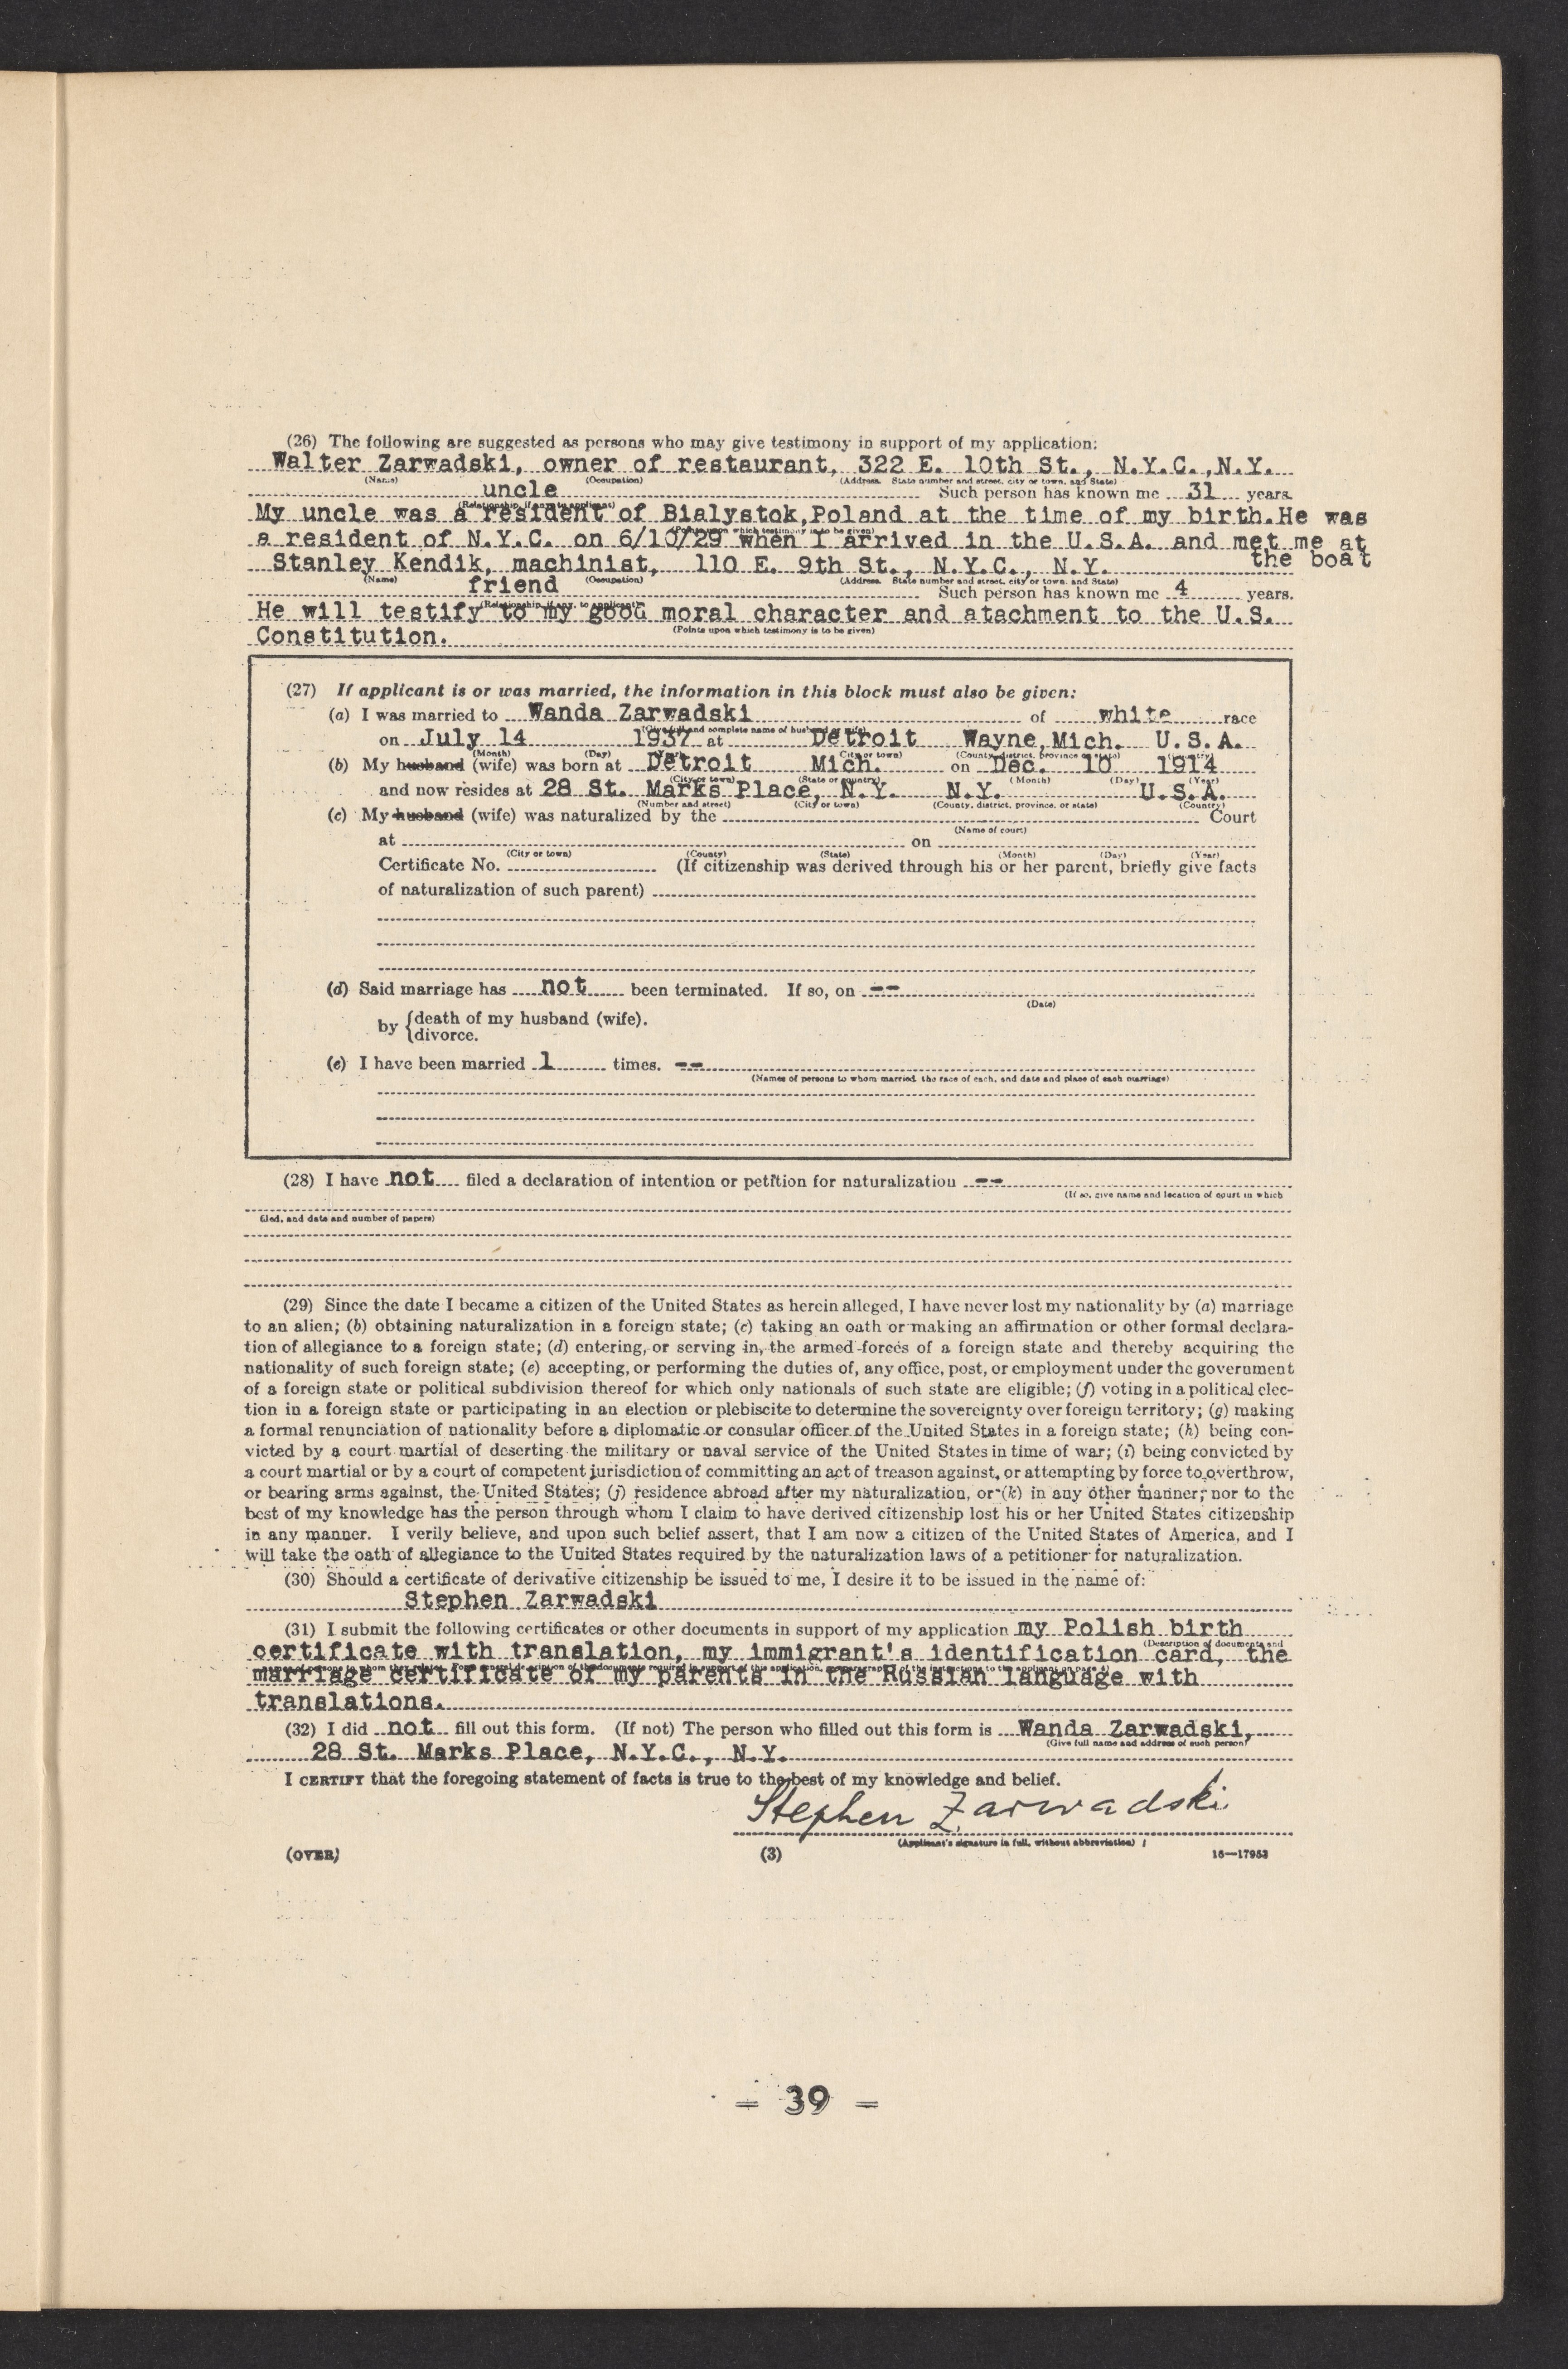 (26) The following are suggested as persons who may give testimony in support of my application:
Walter Zarwadski, owner of restaurant, 322 E. 10th St., N.Y.C.,N.Y.
(Name) (Occupation) (Address. State number and street, city or town, and State)
uncle Such person has known me 31 years.
(Relationship, if any, to applicant)
My uncle was a resident of Bialystok,Poland at the time of my birth.He was
(Points upon which testimony is to be given)
a resident of N.Y.C. on 6/10/29 when I arrived in the U.S.A. and met me at
the boat
Stanley Kendik, machinist, 110 E. 9th St., N.Y.C., N.Y.
(Name) (Occupation) (Address. State number and street, city or town, and State)
friend Such person has known me 4 years.
(Relationship, if any, to applicant)
He will testify to my good moral character and atachment to the U.S.
(Points upon which testimony is to be given)
Constitution.
(27) If applicant is or was married, the information in this block must also be given:
(a) I was married to Wanda Zarwadski of white race
(Give full and complete name of husband or wife)
on July 14 1937 at Detroit Wayne,Mich. U.S.A.
(Month) (Day) (Year) (City or town) (County, district, province or state) (Country)
(b) My husband (wife) was born at Detroit Mich. on Dec. 10 1914
(City or town) (State or country) (Month) (Day) (Year)
and now resides at 28 St. Marks Place, N.Y. N.Y. U.S.A.
(Number and street) (City or town) (County, district, province, or state) (Country)
(c) My husband (wife) was naturalized by the Court
(Name of court)
at on
(City or town) (County) (State) (Month) (Day) (Year)
Certificate No. (If citizenship was derived through his or her parent, briefly give facts
of naturalization of such parent)
(d) Said marriage has not been terminated. If so, on --
(Date)
by {death of my husband (wife).
{divorce.
(e) I have been married 1 times. --
(Names of persons to whom married, the race of each, and date and place of each marriage)
(28) I have not filed a declaration of intention or petition for naturalization --
(If so, give name and location of court in which
filed, and date and number of papers)
(29) Since the date I became a citizen of the United States as herein alleged, I have never lost my nationality by (a) marriage
to an alien; (b) obtaining naturalization in a foreign state; (c) taking an oath or making an affirmation or other formal declara-
tion of allegiance to a foreign state; (d) entering, or serving in, the armed forces of a foreign state and thereby acquiring the
nationality of such foreign state; (e) accepting, or performing the duties of, any office, post, or employment under the government
of a foreign state or political subdivision thereof for which only nationals of such state are eligible; (f) voting in a political elec-
tion in a foreign state or participating in an election or plebiscite to determine the sovereignty over foreign territory; (g) making
a formal renunciation of nationality before a diplomatic or consular officer of the United States in a foreign state; (h) being con-
victed by a court martial of deserting the military or naval service of the United States in time of war; (i) being convicted by
a court martial or by a court of competent jurisdiction of committing an act of treason against, or attempting by force to overthrow,
or bearing arms against, the United States; (j) residence abroad after my naturalization, or (k) in any other manner; nor to the
best of my knowledge has the person through whom I claim to have derived citizenship lost his or her United States citizenship
in any manner. I verily believe, and upon such belief assert, that I am now a citizen of the United States of America, and I
will take the oath of allegiance to the United States required by the naturalization laws of a petitioner for naturalization.
(30) Should a certificate of derivative citizenship be issued to me, I desire it to be issued in the name of:
Stephen Zarwadski
(31) I submit the following certificates or other documents in support of my application my Polish birth
(Description of documents and
certificate with translation, my immigrant's identification card, the
marriage certificate of my parents in the Russian language with
translations.
(32) I did not fill out this form. (If not) The person who filled out this form is Wanda Zarwadski,
(Give full name and address of such person)
28 St. Marks Place, N.Y.C., N.Y.
I CERTIFY that the foregoing statement of facts is true to the best of my knowledge and belief.
Stephen Zarwadski
(Applicant's signature in full, without abbreviation)
(OVER) (3) 16—17953
- 39 -